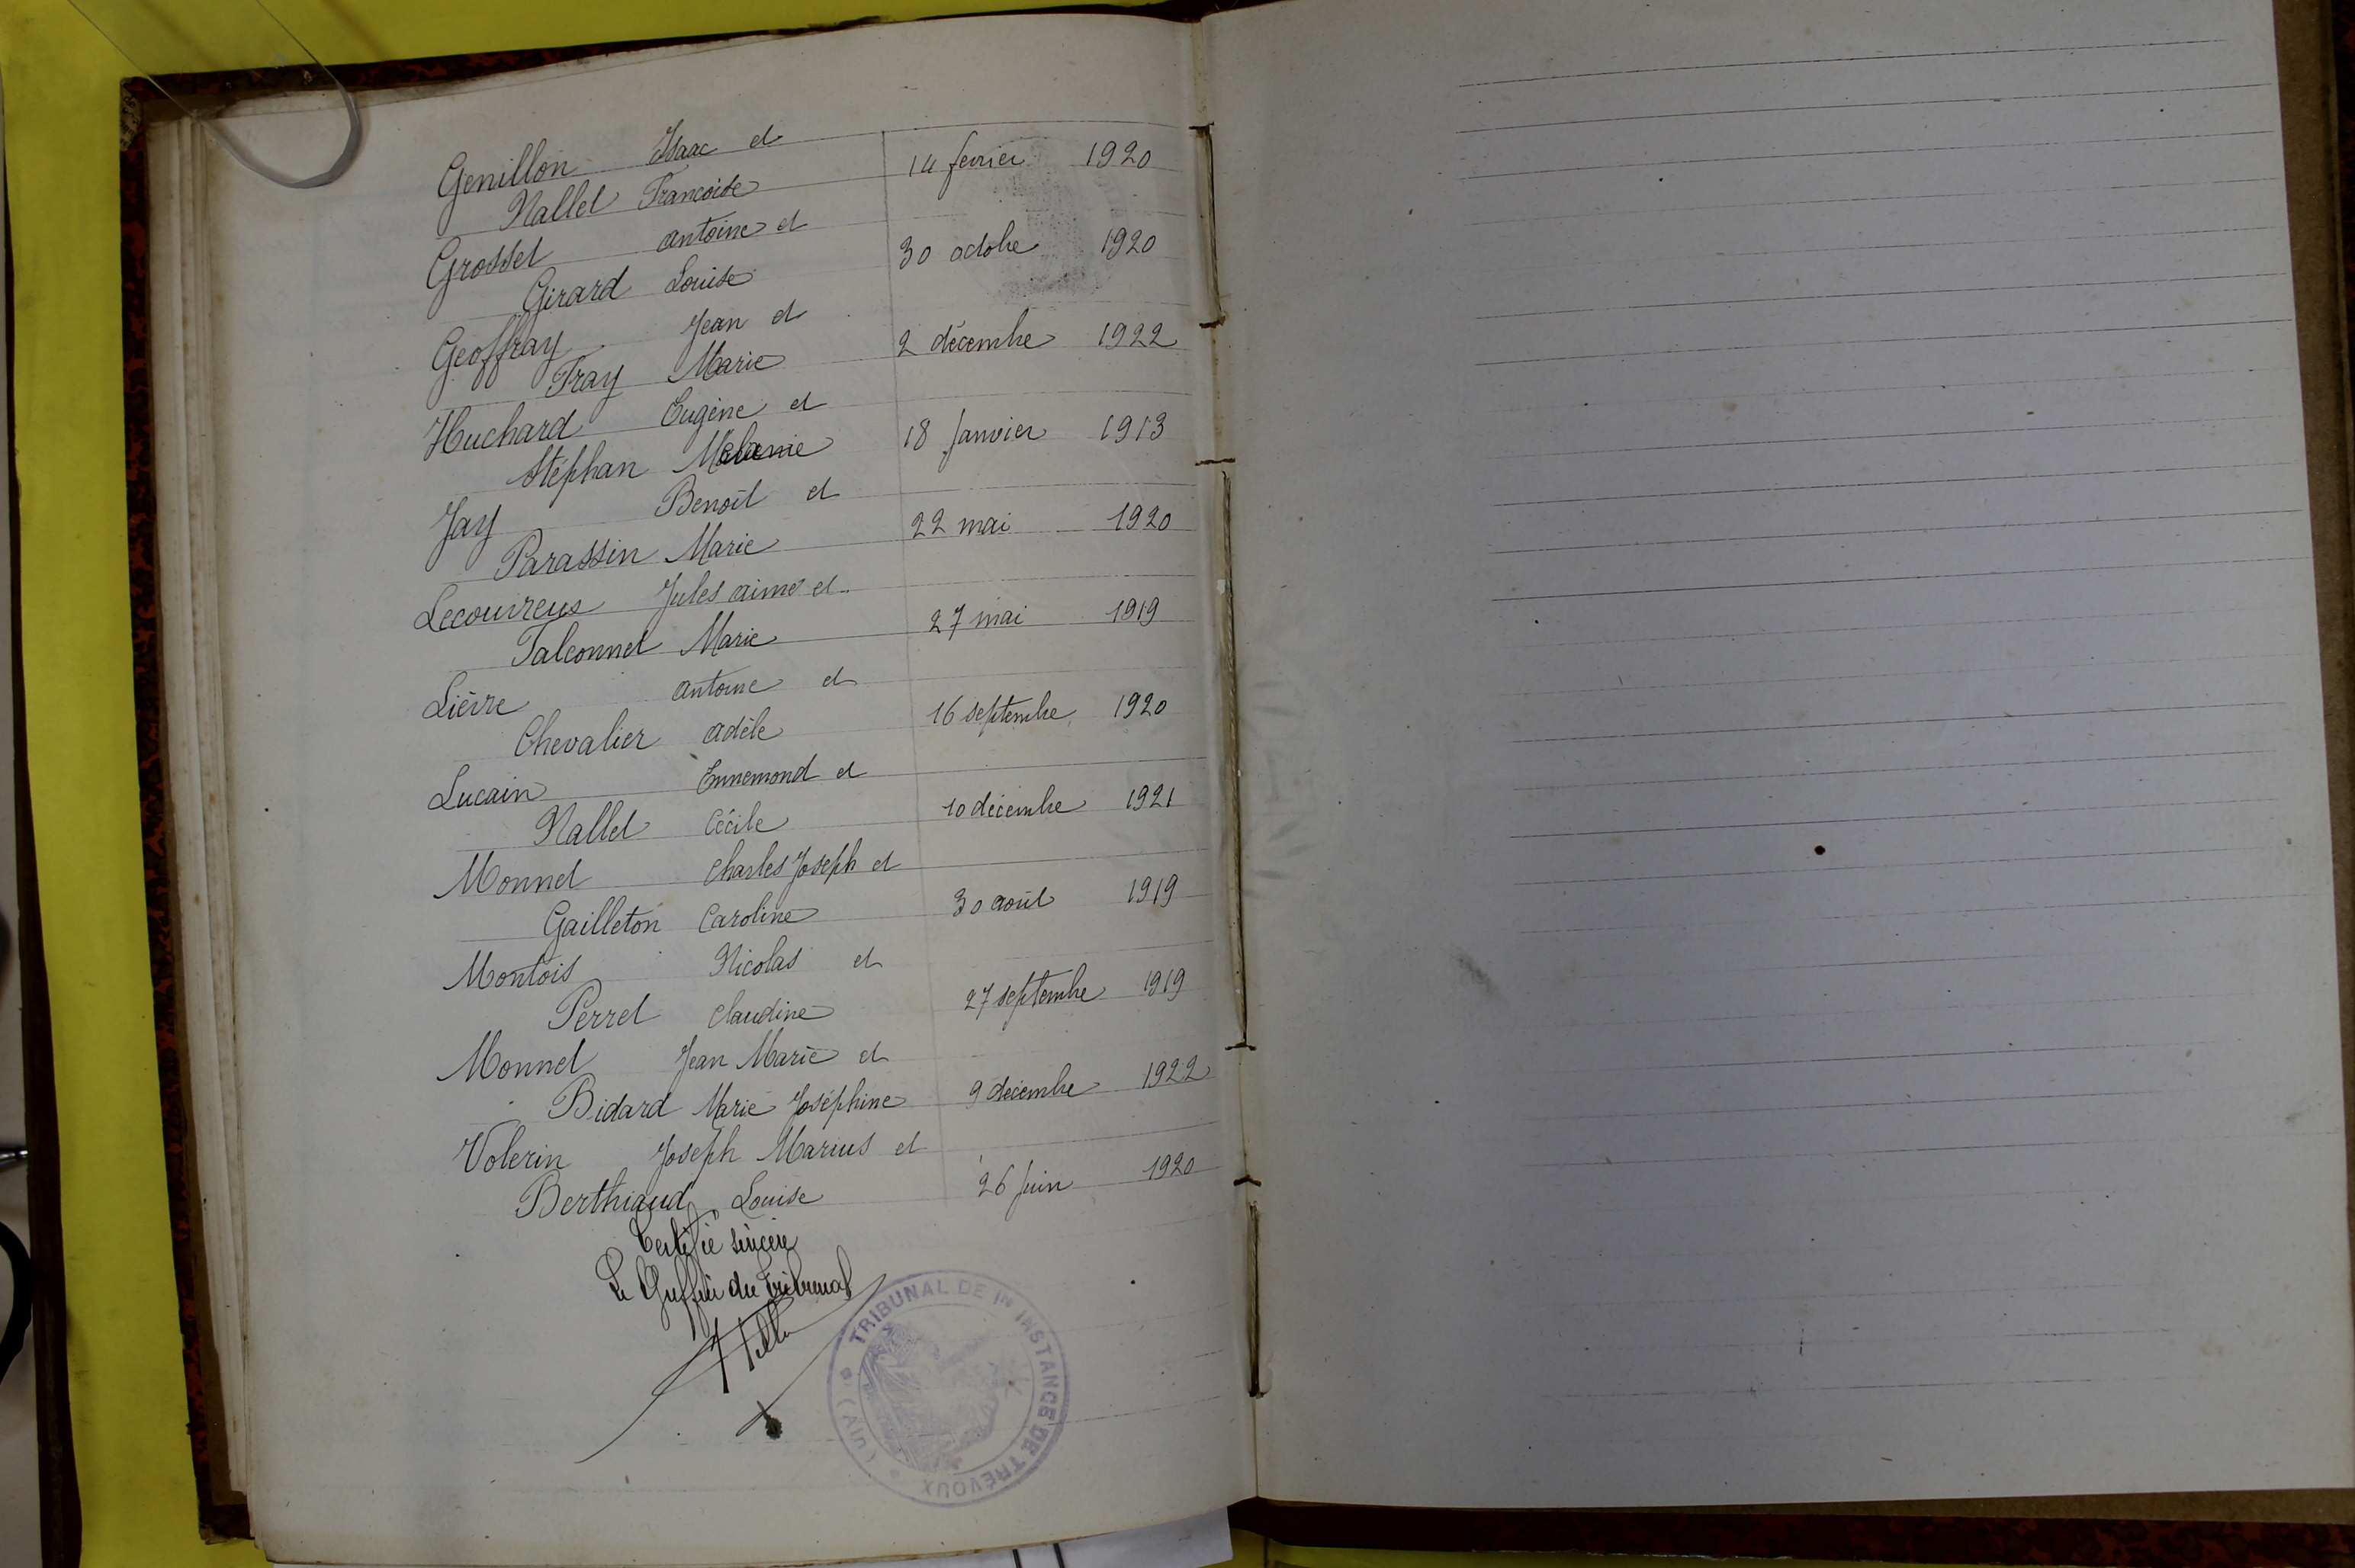 Genillon Isaac et
Nallet Francoise 14 fevrier 1920
Grosset antoine et
Girard Louise 30 octobre 1920
Geoffray Jean et
Fray Marie 2 décembre 1922
Huchard Eugène et
Stéphan Melanie 18 Janvier 1913
Jay Benoît et
Parassin Marie 22 mai 1920
Lecouvreus Jules aimé et
Falconnet Marie 27 mai 1919
Lièvre antoine et
Chevalier adèle 16 septembre 1920
Lucain Ennemond et
Nallet Cécile 10 décembre 1921
Monnet Charles Joseph et
Gailleton Caroline 30 août 1919
Montois Nicolas et
Perret Claudine 27 septembre 1919
Monnet Jean Marie et
Bidard Marie Joséphine 9 décembre 1922
Volerin Joseph Marius et
Berthiaud Louise 26 Juin 1920
Certifié sincère
Le Greffier du Tribunal
TRIBUNAL DE 1re INSTANCE DE TREVOUX (Ain)